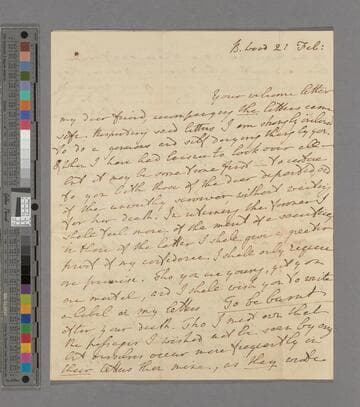 B. wood 21 Feb:
Your welcome letter
my dear friend accompanying the letters came
safe. Respecting said letters I am strongly inclined
to do a generous and self denying thing by you.
When I have had leisure to look over all
but it may be some time first to restore
to you both those of the dear departed and
of the unworthy survivor without waiting
for her death. In returning the former I
shall feel more of the merit of a sacrifice,
in those of the latter I shall give a greater
proof of my confidence. I shall only require
one promise. Tho you are young, yet you
are mortal, and I shall wish you to write
a label on my letters To be burnt
after your death. Tho I must own that
the passages I wished not be seen by any
but ourselves occur more frequently in
their letters than mine, as they wrote